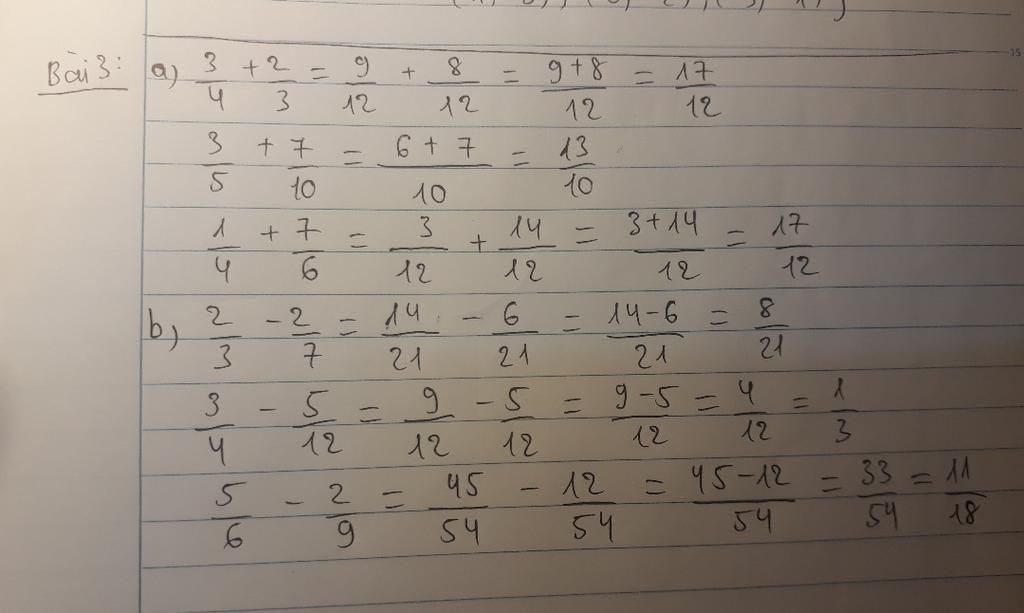 Bài 3: a) 3/4 + 2/3 = 9/12 + 8/12 = 9+8/12 = 17/12
3/5 + 7/10 = 6+7/10 = 13/10
1/4 + 7/6 = 3/12 + 14/12 = 3+14/12 = 17/12
b) 2/3 - 2/7 = 14/21 - 6/21 = 14-6/21 = 8/21
3/4 - 5/12 = 9/12 - 5/12 = 9-5/12 = 4/12 = 1/3
5/6 - 2/9 = 45/54 - 12/54 = 45-12/54 = 33/54 = 11/18